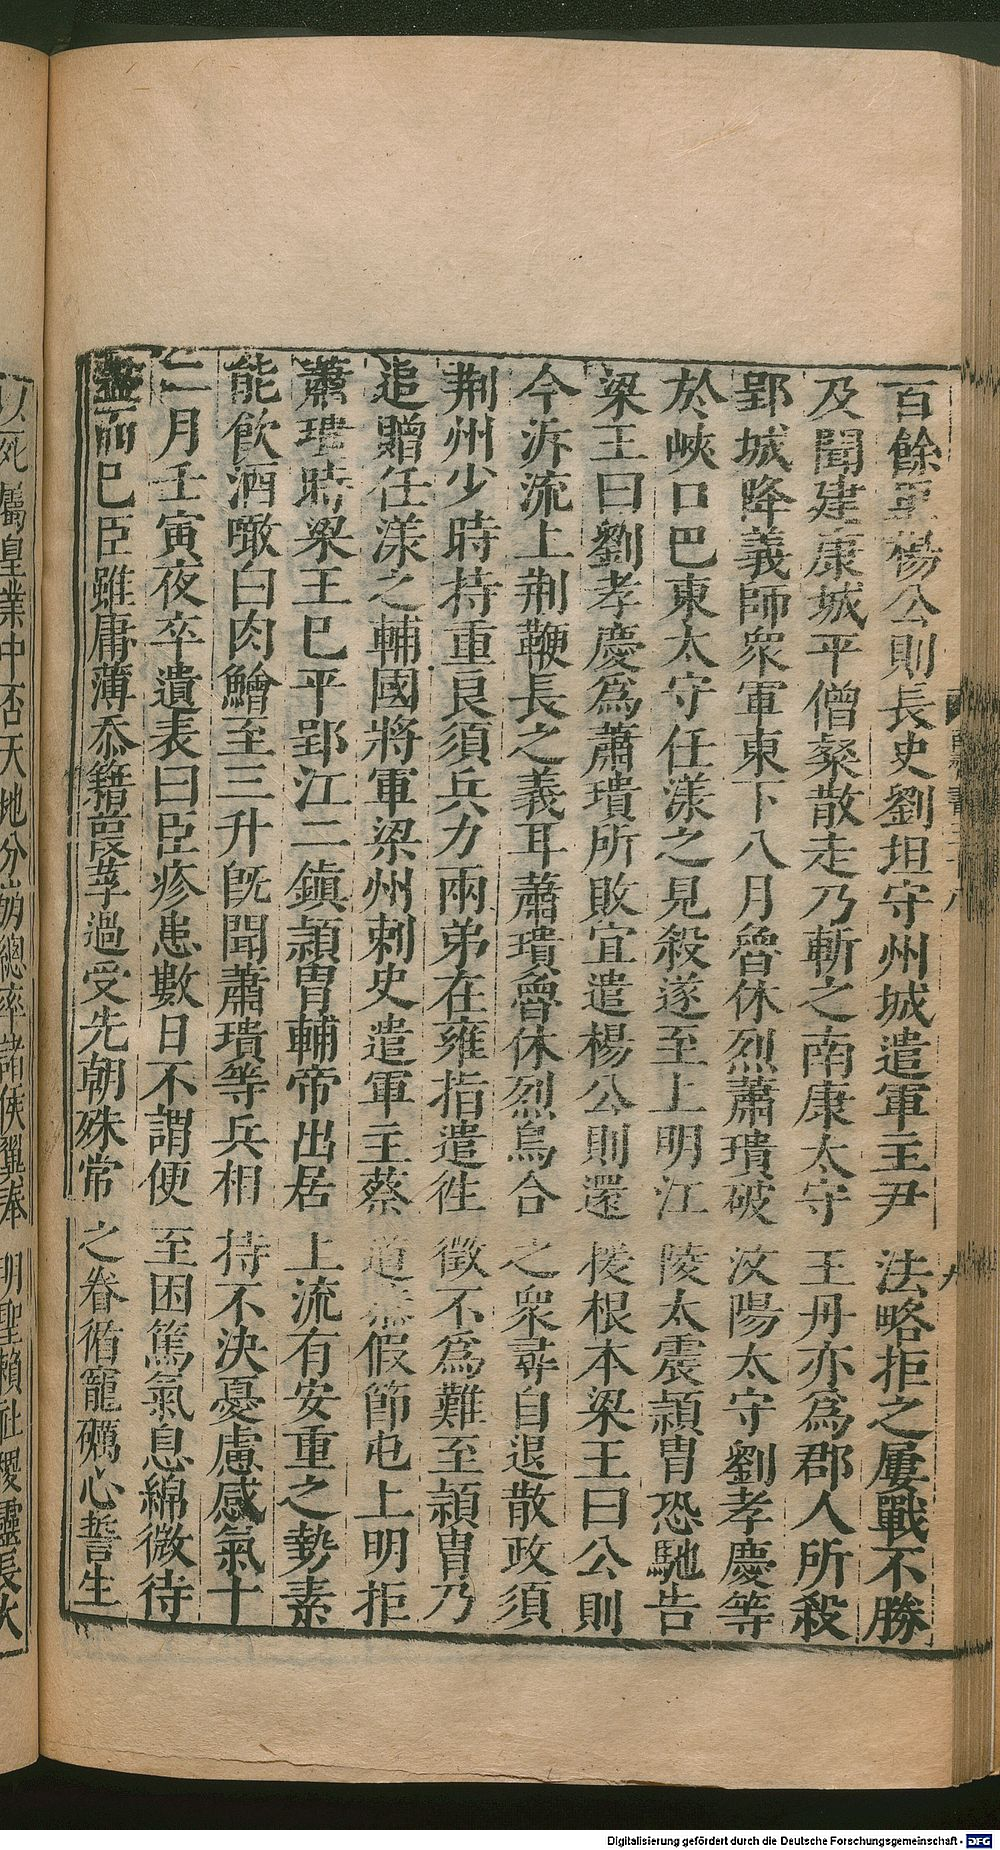 百餘里楊公則長史劉坦守州城遣軍主尹法略拒之屢戰不勝
及聞建康城平僧粲散走乃斬之南康太守王丹亦為郡人所殺
郢城降義師衆軍東下八月魯休烈蕭璝破汶陽太守劉孝慶等
於峽口巴東太守任漾之見殺遂至上明江陵大震頴胄恐馳告
梁王曰劉孝慶為蕭璝所敗宜遣楊公則還援根本梁王曰公則
今泝流上荆鞭長之義耳蕭璝魯休烈烏合之衆尋自退散政須
荆州少時持重良須兵力兩弟在雍指遣往徵不為難至頴胄乃
追贈任漾之輔國將軍梁州刺史遣軍主蔡道恭假節屯上明拒
蕭璝時梁王巳平郢江二鎮頴胄輔帝出居上流有安重之勢素
能飲酒噉白肉鱠至三升旣聞蕭璝等兵相持不決憂慮感氣十
二月壬寅夜卒遺表曰臣疹患數日不謂便至困篤氣息綿微待
盡而巳臣雖庸薄忝籍葭莩過受先朝殊常之眷循寵礪心誓生
以死屬皇業中否天地分崩總率諸侯翼奉明聖賴社稷靈長大
九
Digitalisierung gefördert durch die Deutsche Forschungsgemeinschaft - DFG